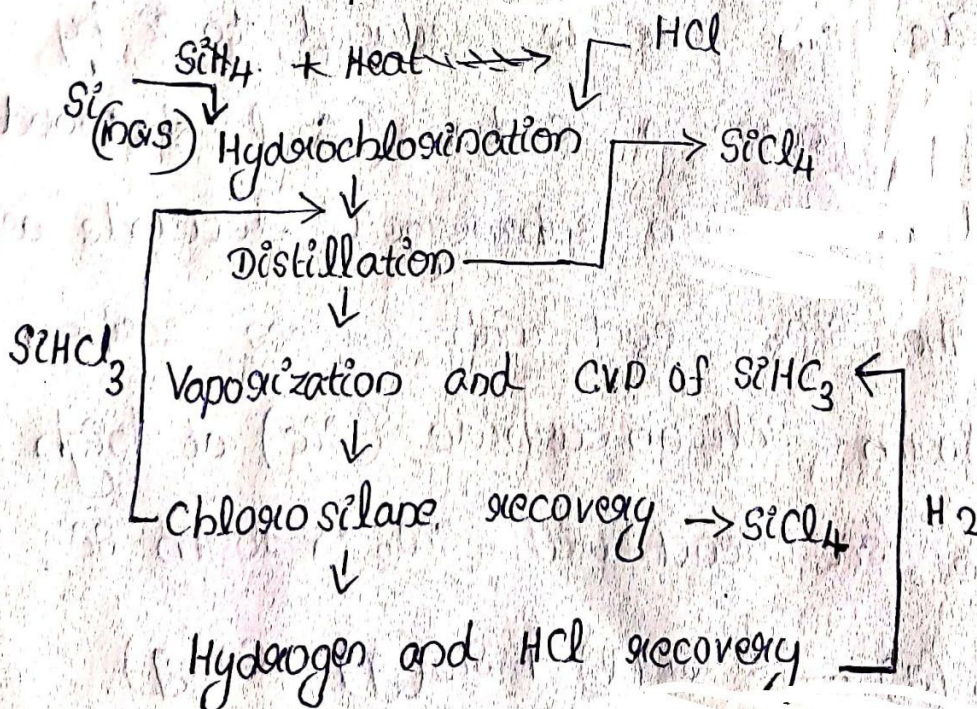 SiH4 + Heat HCl
Si
(mas) Hydrochlorination → SiCl4
Distillation
SiHCl3
Vaporization and CVD of SiHC3
Chlorosilane recovery → SiCl4
H2
Hydrogen and HCl recovery